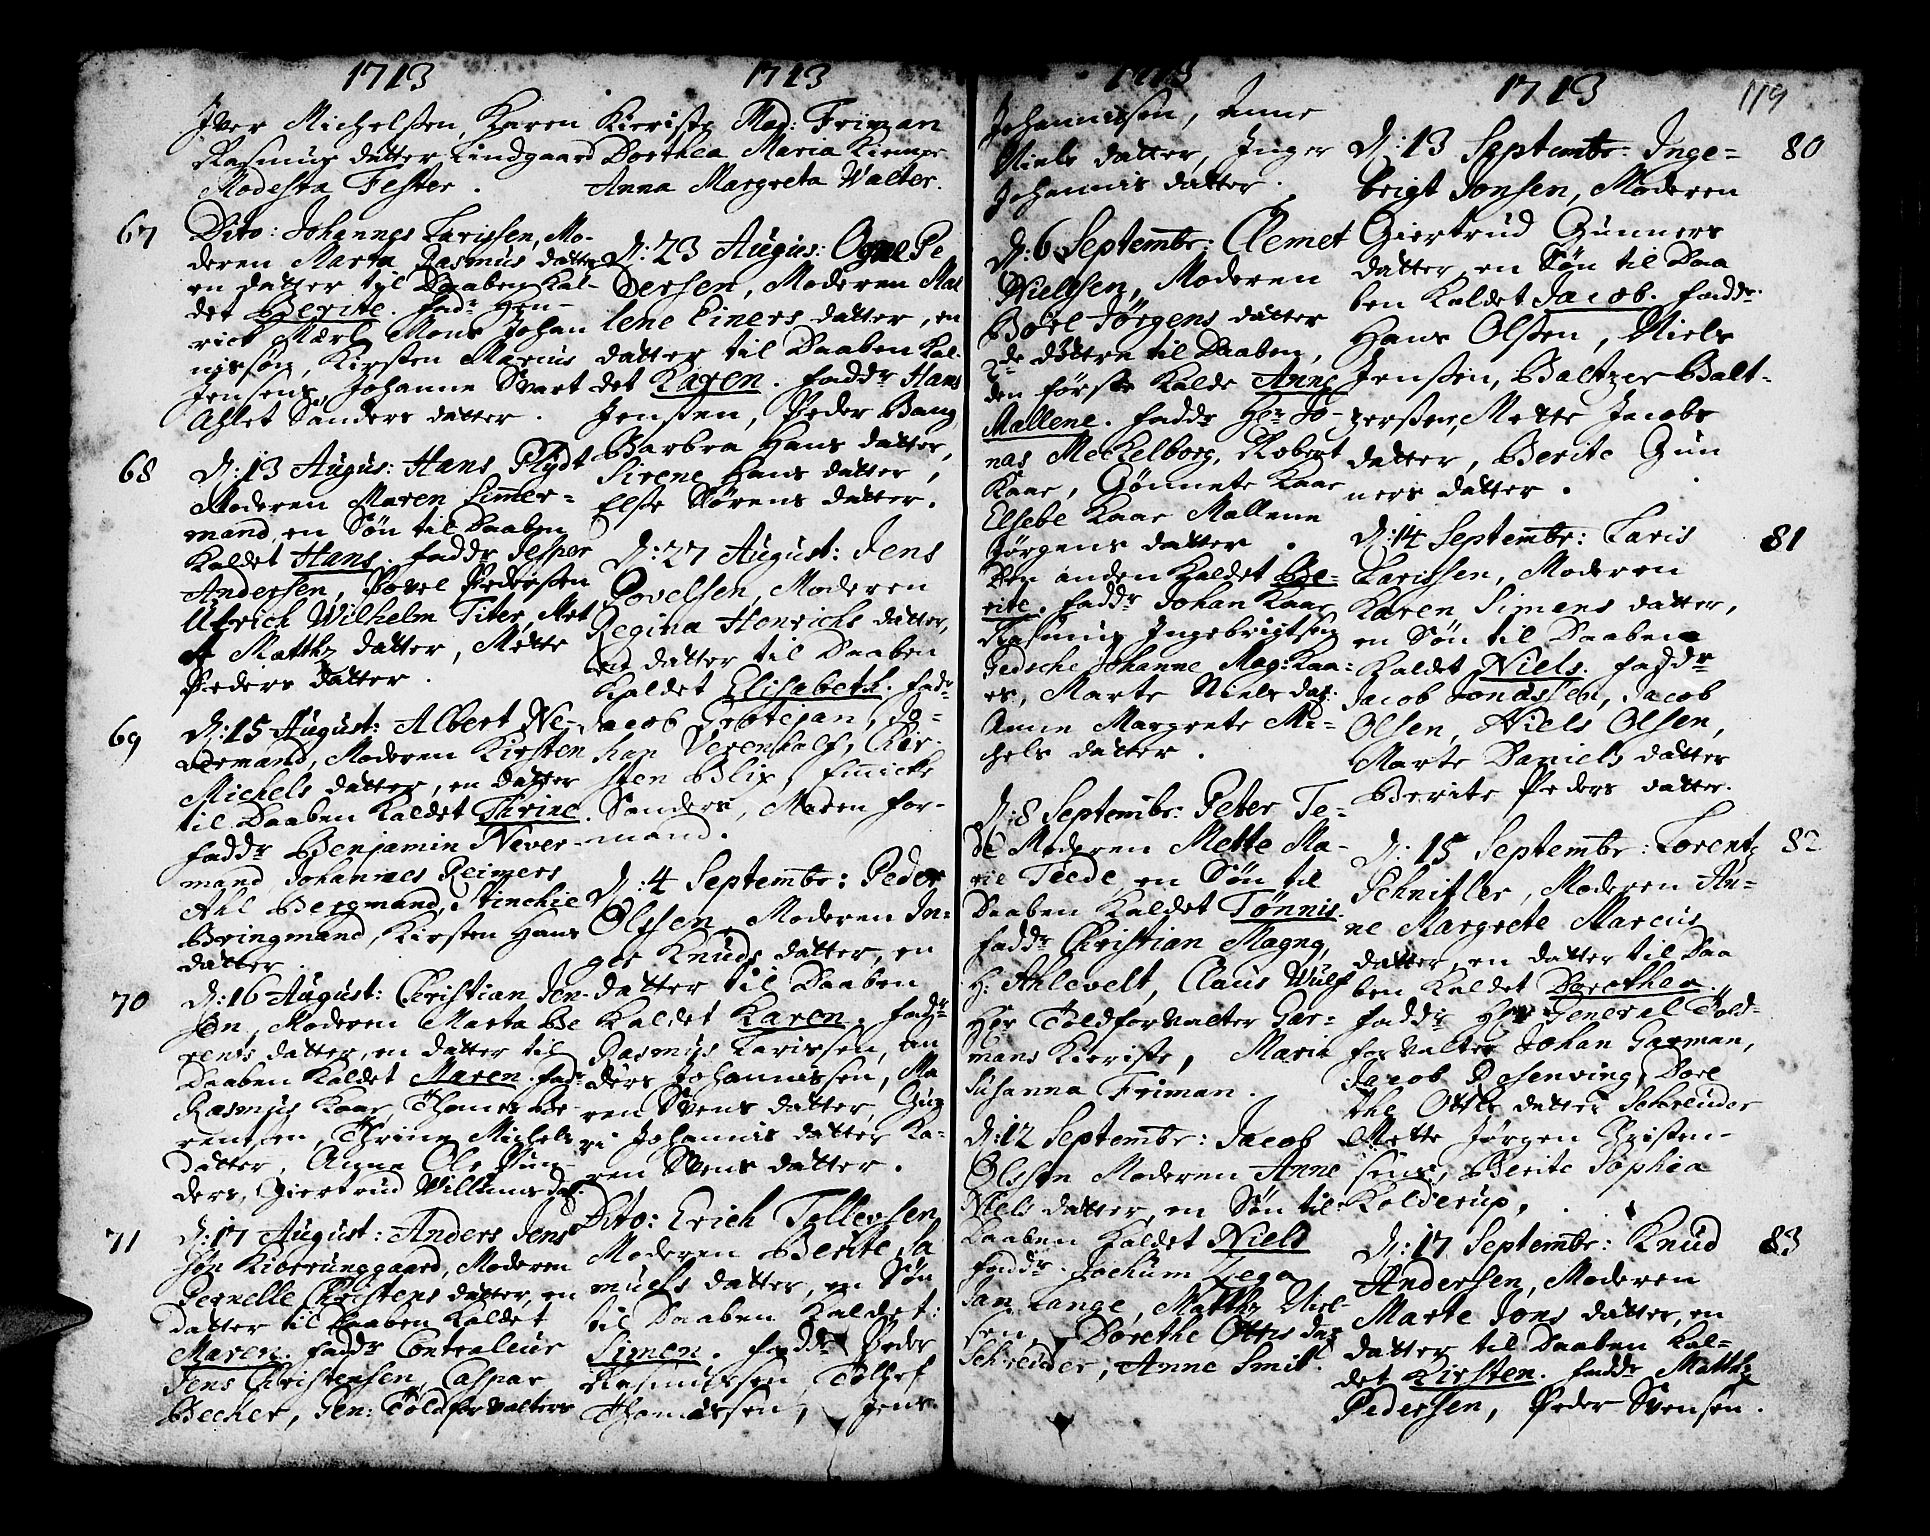 1713
Iver Michelssen, Karen
Rasmus datter Lindgaard
Modesta Fester.
67
Dito: Johannes Larissen, Mo-
deren Marta Rasmus datter
en datter til Daaben Kal-
det Berite. fadr Hen-
rich Mons Johan
nissøn, Kirsten Marcus
Jensens, Johanne Svart
Ahlet Sanders datter.
68
D: 13 Augus: Hans Plydt
Moderen Maren Timmer-
mand, en Søn til Daaben
Kaldet Hans. faddr Jesper
Andersen, Povel Pedersen
Ulrich Wilhelm Titer, Met
te Matthz datter, Mette
Peders datter.
69
D: 15 August: Albert Ne-
vermand, Moderen Kirsten
Michels datter, en datter
til Daaben Kaldet Thrine.
faddr Benjamin Never-
mand, Johannes Reimers
Ahl Bergmand, Stinchie
Bringmand, Kirsten Hans
datter.
70
D: 16 August: Christian Jen-
sen, Moderen Marta Be
rents datter, en datter til
Daaben Kaldet Maren. fadr
Rasmus Kaar, Thomes Be-
rentsen, Thrine Michels
datter, Anna Ols
ders, Giertrud Willumsdat.
71
D: 17 August: Anders Jens
søn Kiberunggaard, Moderen
Pernelle Christens datter, en
datter til Daaben Kaldet
Maren. faddr Contraleur
Jens Christensen, Caspar
Becher, Gen: Toldforvalters
1713
Kieriste Mad: Friman
Dorthea Maria Kiempe
Anna Margreta Walter.
D: 23 Augus: Ogne Pe
dersen, Moderen Mal
lene Einers datter, en
datter til Daaben Kal-
det Karen. faddr Hans
Jenssen, Peder Bang
Barbra Hans datter,
Sirene Hans datter,
Else Sørens datter.
D: 27 August: Jens
Povelsen, Moderen
Regina Henrichs datter,
en datter til Daaben
Kaldet Elisabeth. fadr
Jacob Grotejan, Jo-
han Verenhalf, Kir-
sten Blix, Emicke
Sanders, Maren For-
mand.
D: 4 Septembr: Peder
Olssen, Moderen In-
ger Knuds datter, en
datter til Daaben
Kaldet Karen. fadr
Rasmus Larissen, An
ders Johannissen, Ma
ren Svens datter, Gun
ri Johannis datter Ka-
ren Svens datter.
Dito: Erich Tollevsen
Moderen Berite Sa
muels datter, en Søn
til Daaben Kaldet:
Simen. faddr Peder
Rasmussen, Tollef
Thomassen, Jens
1713
Johannissen, Anne
Niels datter, Inger
Johannis datter.
D: 6 Septembr: Clemet
Nielssen, Moderen
Boel Jørgens datter
2de døttre til Daaben,
den første Kalde Anne
Mallene. faddr Hr: Jo-
nas Meckelborg, Robert
Kaar, Gønnete Kaar
Elsebe Kaar Mallene
Jørgens datter.
Den anden Kaldet Be-
rite. faddr Johan Kaar
Rasmus Ingebrigtsen
Gedsche Johanne Mag: Kaa-
rs, Marte Niels dat:
Anne Margrete Mi-
chels datter.
D: 8 Septembr: Peter Te-
de Moderen Mette Ma-
rie Teede en Søn til
Daaben Kaldet Tønnis.
faddr Christian Magng,
H: Ahlevelt, Claus Wulf
Her Toldforvalter Gar-
mans Kieriste, Maria
Susanna Friman.
D: 12 Septembr: Jacob
Olssen Moderen Anne
Niels datter, en Søn til
Daaben Kaldet Niels
faddr. Jochum Tega
Jan Lange, Matthz Niel-
sen, Dorethe Ottis dat
Schreuder, Anne Smit.
1713
119
D: 13 Septembr: Inge-
80
brigt Jonsen, Moderen
Giertrud Gunners
datter, en Søn til Daa
ben Kaldet Jacob. faddr.
Hans Olssen, Niels
Jenssen, Baltzer Balt-
zerssen, Mette Jacobs
datter, Berite Gun
ners datter.
D: 14 Septembr: Laris
81
Larissen, Moderen
Karen Simens datter,
en Søn til Daaben
Kaldet Niels. faddr
Jacob Jonassen, Jacob
Olsen, Niels Olsen,
Marte Daniels datter
Berite Peders datter.
D: 15 Septembr: Lorentz
82
Schnitler, Moderen An-
ne Margrete Marcus
datter, en datter til Daa
ben Kaldet Dorethea.
faddr Her General Told-
forvalter Johan Garman,
Jacob Rosenving, Dore
the Ottis datter Schreuder
Mette Jørgen Christen-
sens, Berite Sophia
Kolderup.
D: 17 Septembr: Knud
83
Andersen, Moderen
Marte Jons datter, en
datter til Daaben Kal-
det Kirsten. faddr Matthz
Pedersen, Peder Svensen.